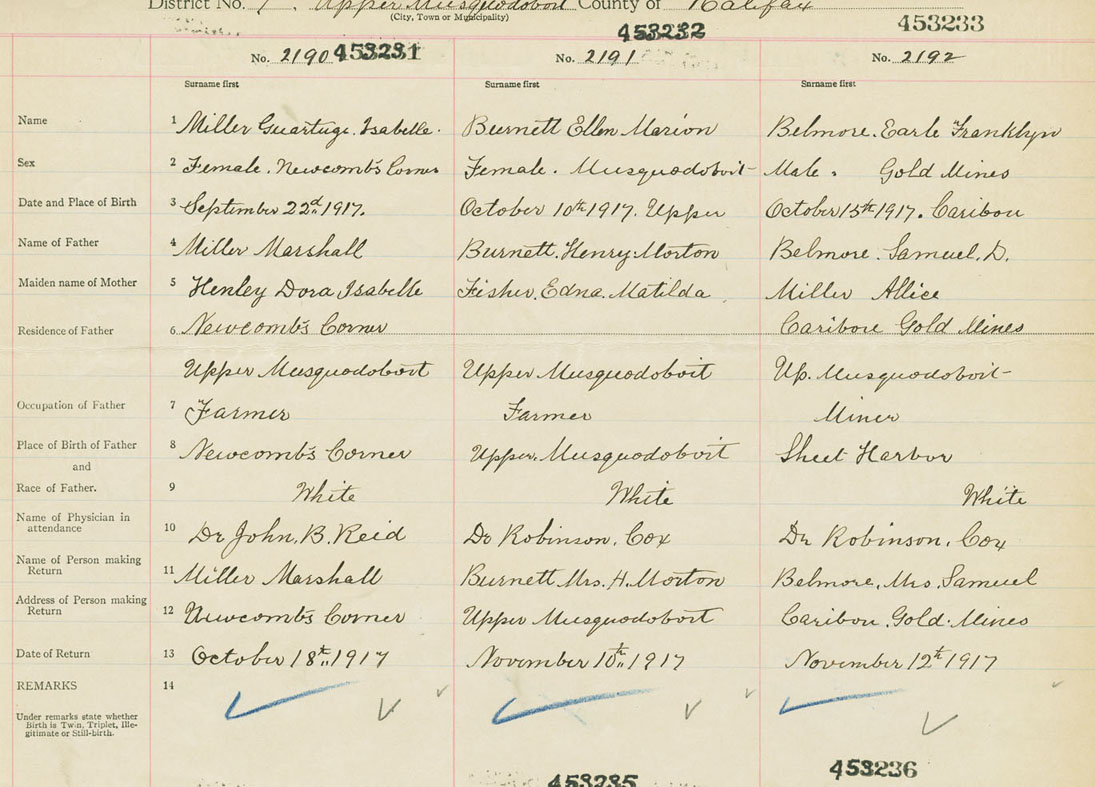 District No. 7. Upper Musquodoboit County of Halifax
(City, Town or Municipality)
453232 453233
No. 2190 453231 No. 2191 No. 2192
Surname first Surname first Surname first
Name 1 Miller Isabelle. Burnett Ellen Marion Belmore. Earle Franklyn
Sex 2 Female. Newcomb's Corner Female. Musquodoboit Male. Gold Mines
Date and Place of Birth 3 September 22d. 1917. October 10th 1917. Upper October 15th 1917. Caribou
Name of Father 4 Miller Marshall Burnett. Henry Morton Belmore. Samuel. D.
Maiden name of Mother 5 Henley Dora Isabelle Fisher. Edna. Matilda Miller Allice
Residence of Father 6 Newcomb's Corner Caribou Gold Mines
Upper Musquodoboit Upper Musquodoboit Up. Musquodoboit
Occupation of Father 7 Farmer Farmer Miner
Place of Birth of Father 8 Newcomb's Corner Upper. Musquodoboit Sheet Harbor
and
Race of Father. 9 White White White
Name of Physician in attendance 10 Dr John. B. Reid Dr Robinson. Cox Dr Robinson. Cox
Name of Person making Return 11 Miller Marshall Burnett Mrs. H. Morton Belmore, Mrs. Samuel
Address of Person making Return 12 Newcomb's Corner Upper Musquodoboit Caribou. Gold. Mines
Date of Return 13 October 18th. 1917 November 10th. 1917 November 12th 1917
REMARKS 14
Under remarks state whether
Birth is Twin, Triplet, Ille-
gitimate or Still-birth.
453235 453236